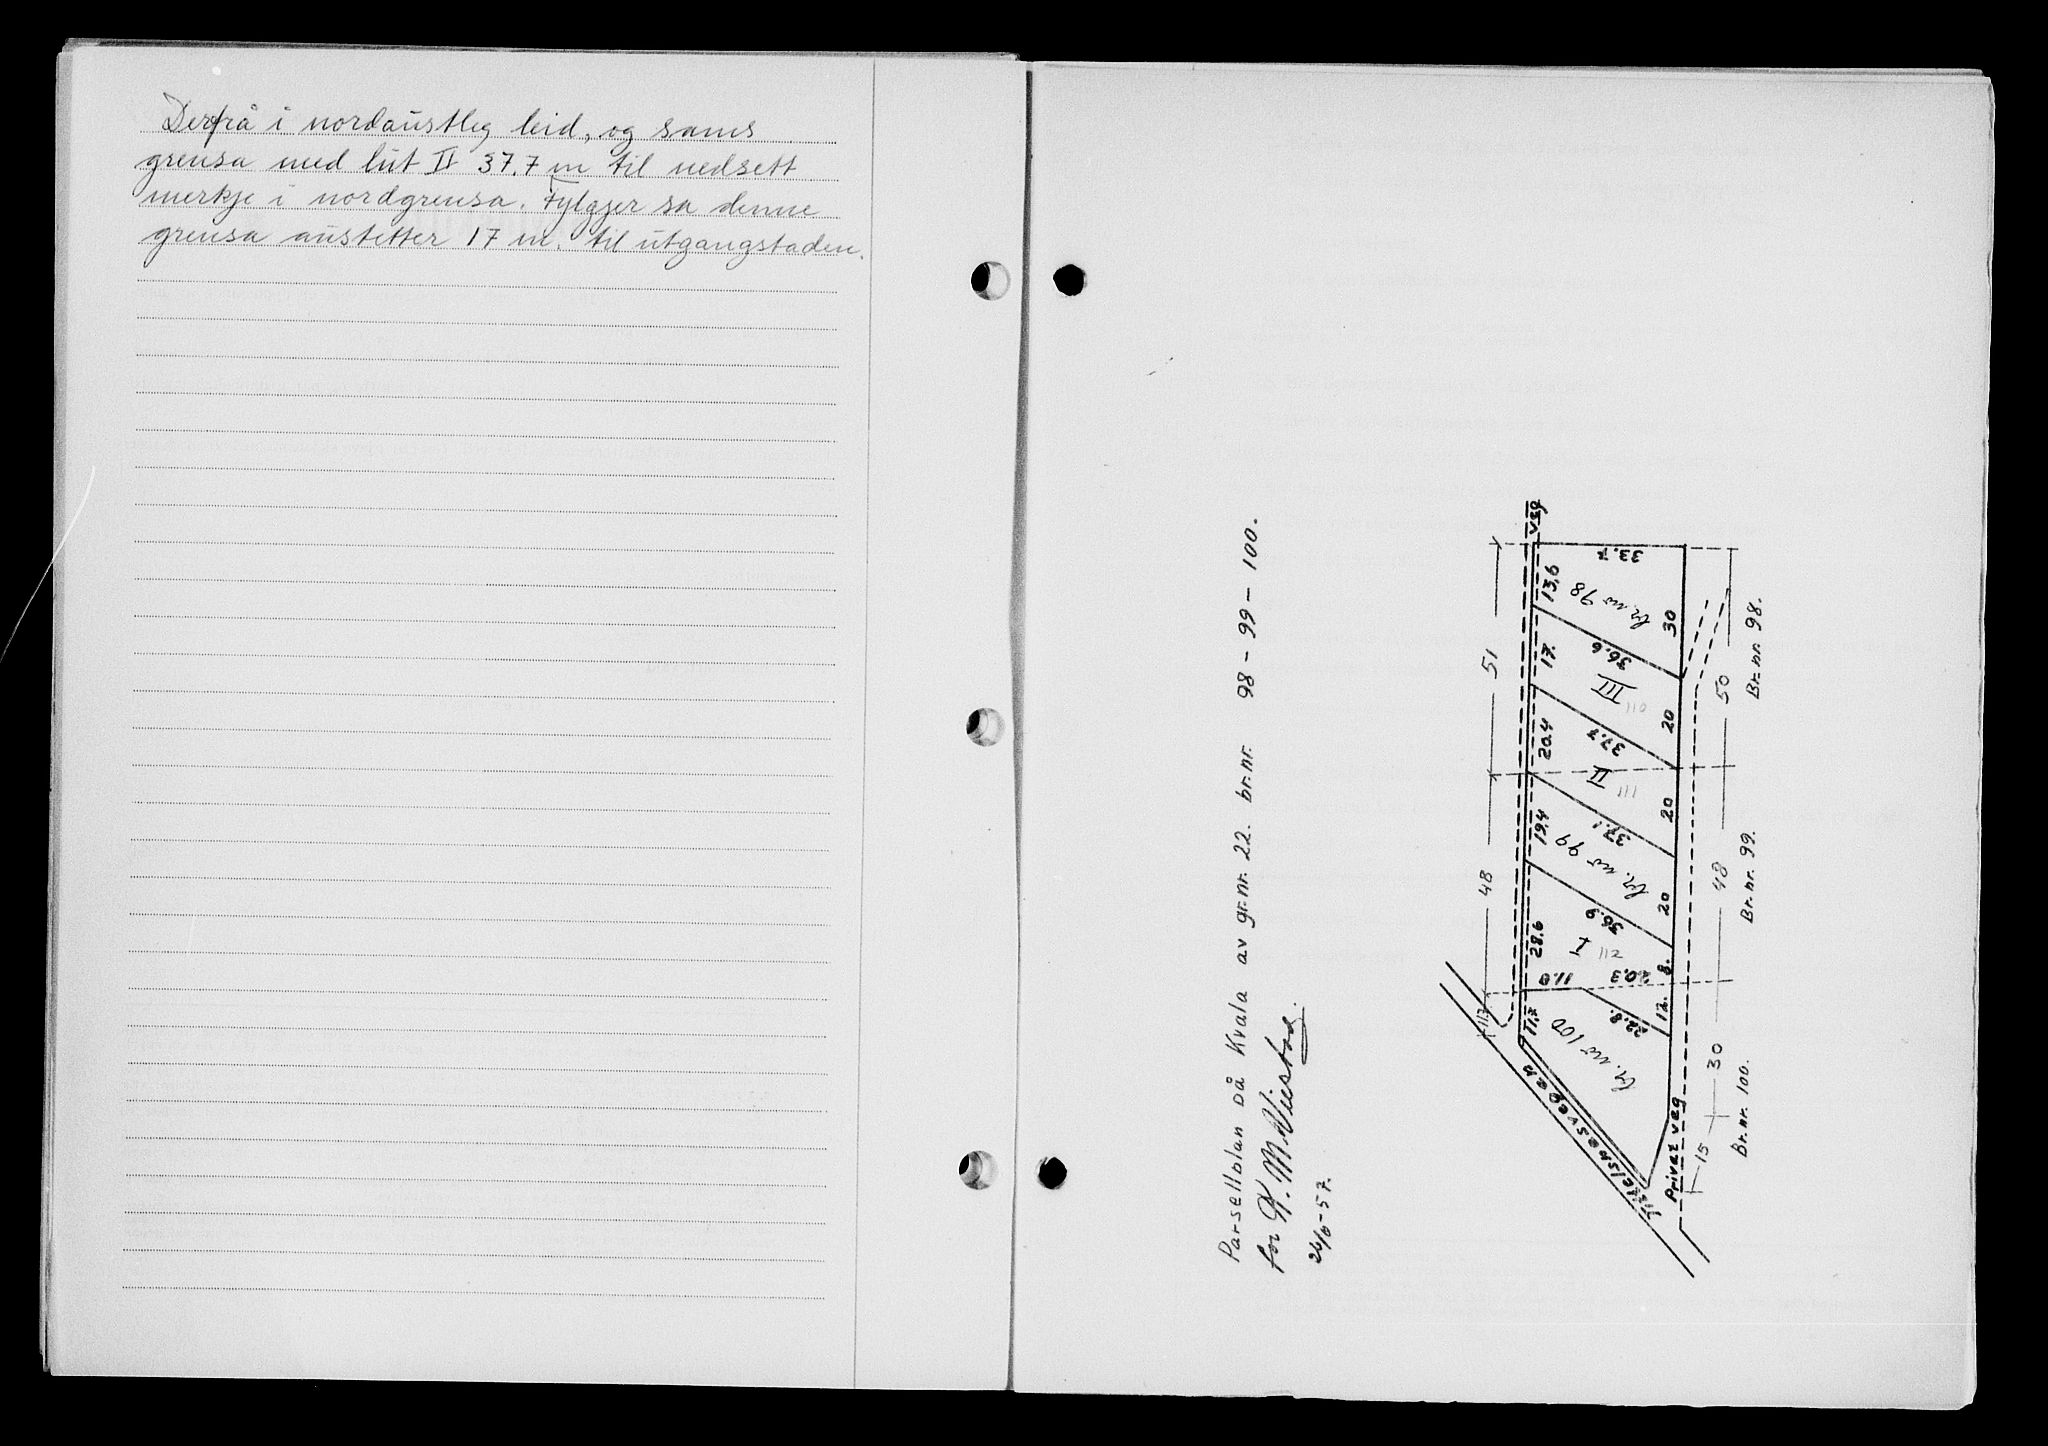 Derfrå i nordaustleg leid, og sams
grensa med lut II 37.7 m til nedsett
merkje i nordgrensa. Fylgjer sa denne
grensa austetter 17 m. til utgangstaden.
Parsellplan på Kvala av gr.nr. 22. br.nr. 98 – 99 – 100.
for K. M. Viestad.
26/6-57.
51
48
11.7
veg
13,6
17.
20.4
19.4
28.6
11,7
33.7
br. nr 98
36.6
III
110
37.7
II
111
37.1
br. nr 99
36.9
I
112
11.0
20.3
22.8.
br. nr 100
30
20
20
20
8.
12.
Privat veg
50
48
30
15
Br. nr. 98.
Br. nr. 99.
Br. nr. 100.